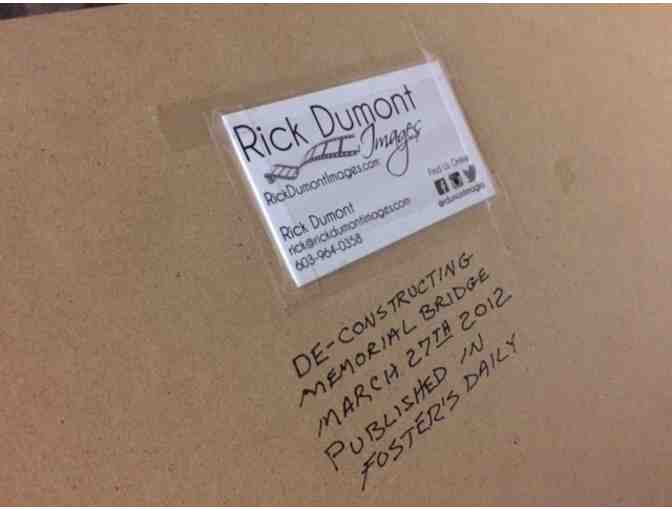 Rick Dumont
Images
RickDumontImages.com
Find Us Online
@rdumontimages
Rick Dumont
rick@rickdumontimages.com
603-964-0358
DE-CONSTRUCTING
MEMORIAL BRIDGE
MARCH 27TH 2012
PUBLISHED IN
FOSTER'S DAILY